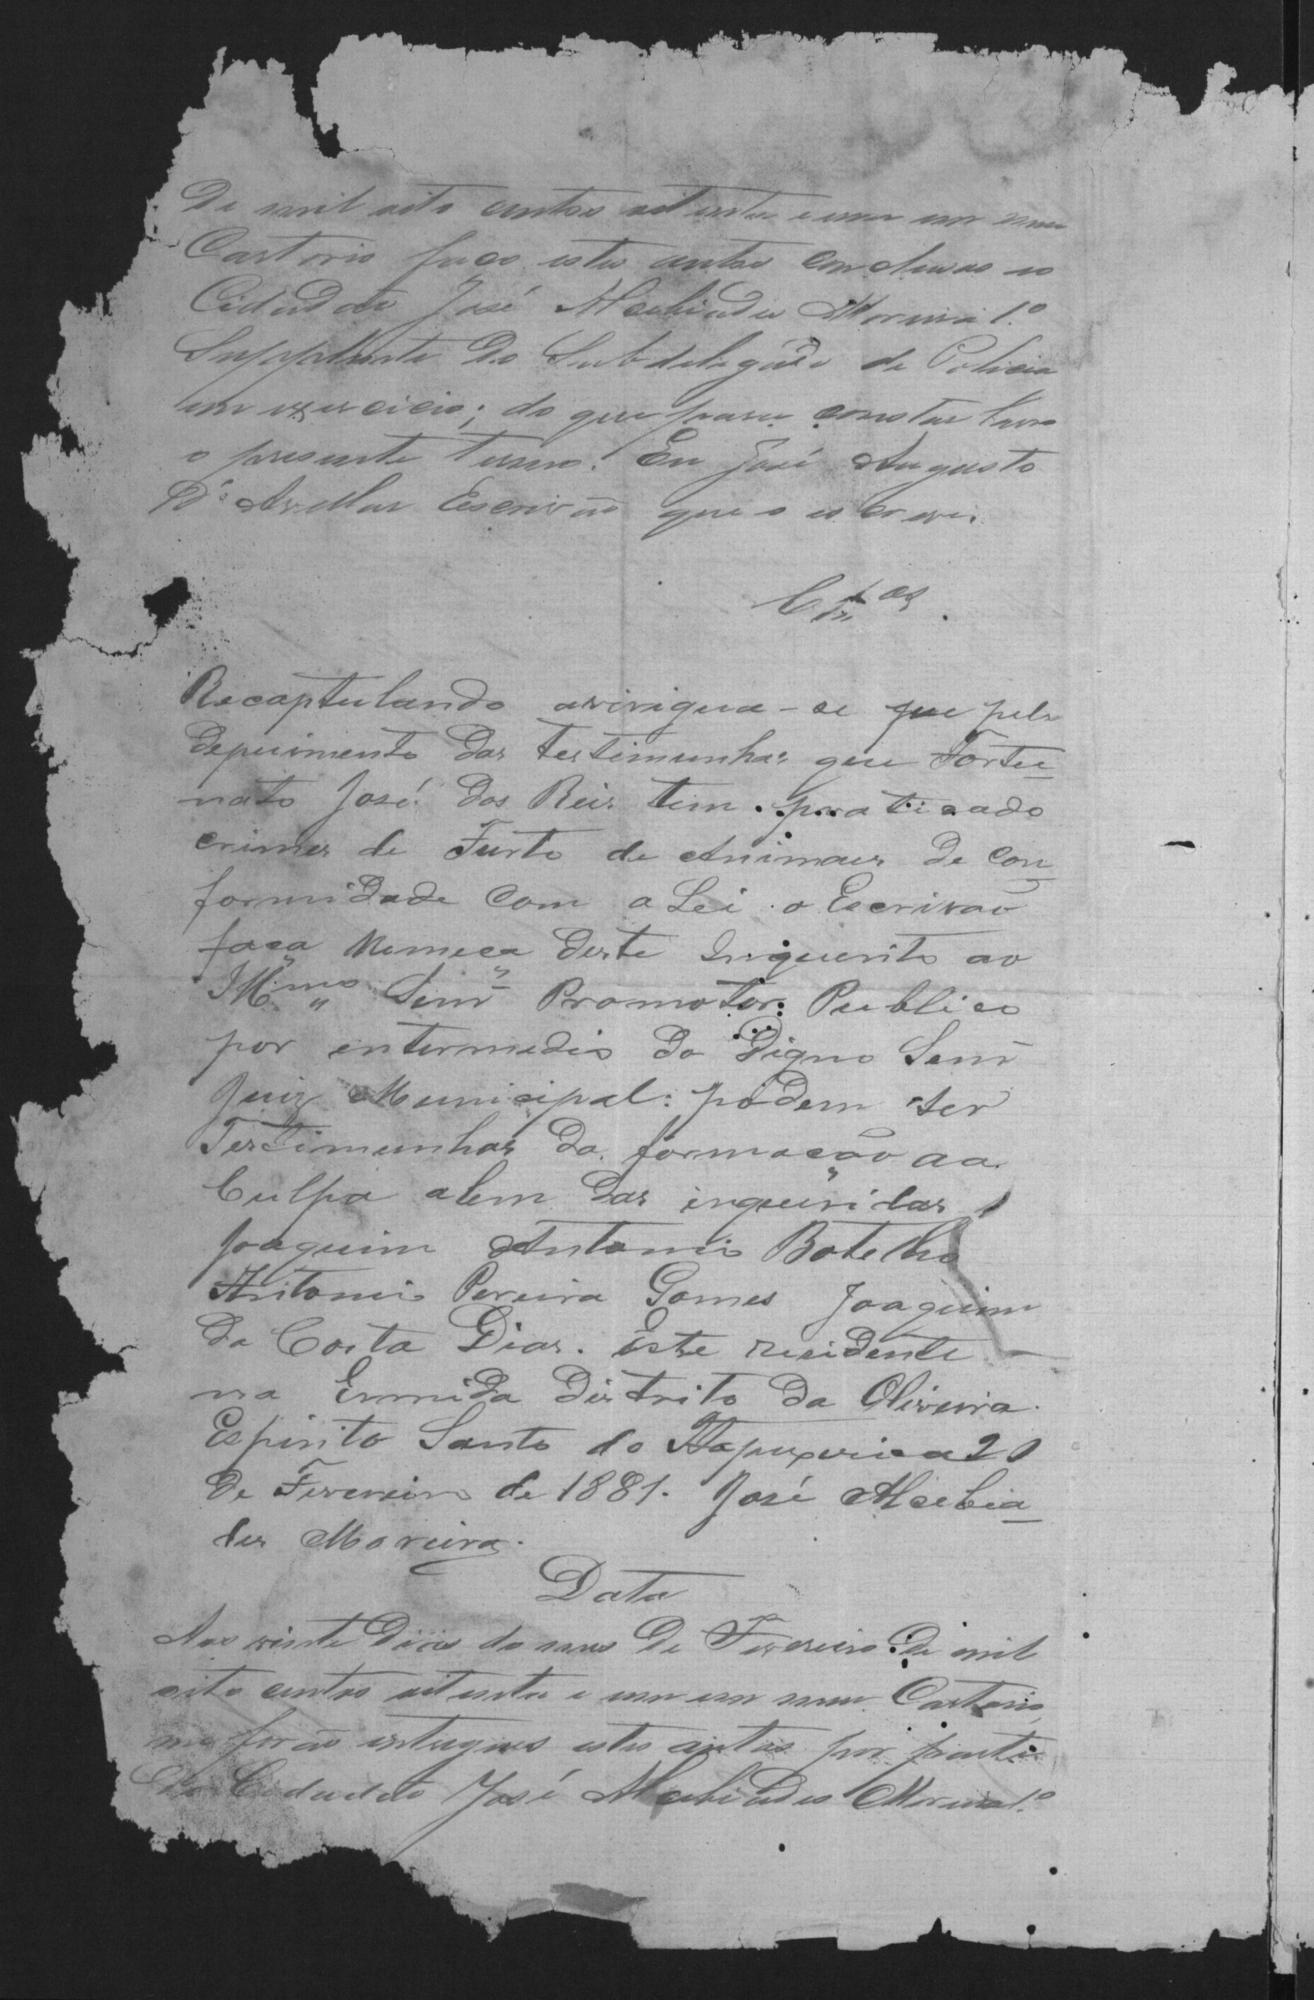 De mil oito centos oitenta e um em meu
Cartorio faço estes autos conclusos ao
Cidadão José Alcebiades Moreira 1.º
Supplente do Subdelegado de Policia
em exercicio; do que para constar lavro
o presente termo. Eu José Augusto
D'Avellar Escrivão que o escrevi.
Cls.os
Recaptulando averigua-se que pelo
depuimento das testimunhas que Fortu-
nato José dos Reis tem praticado
crimes de Furto de Animaes De con-
formidade com a Lei o Escrivão
faça remeça deste Inquerito ao
Ill.mo Senr Promotor Publico
por entermedio do Digno Senr
Juiz Municipal: podem ser
Testimunhas da formação da
Culpa alem das inqueridas
Joaquim Antonio Botelho
Antonio Pereira Gomes Joaquim
da Costa Dias. este residente
na Ermida Distrito da Oliveira.
Espirito Santo do Itapyxerica 20
de Fevereiro de 1881. José Alcebia-
des Moreira.
Data
Aos vinte dias do mes de Fevereiro de mil
oito centos oitenta e um em meu Cartorio
me forão entregues estes autos por parte
do Cidadão José Alcebiades Moreira 1.º